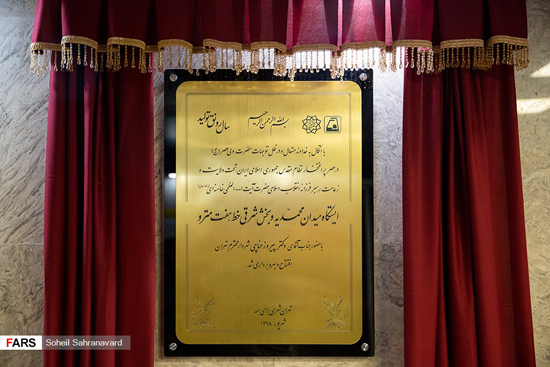 بسم الله الرحمن الرحیم
سال رونق تولید
با اتکال به خداوند متعال و در ظل توجهات حضرت ولی عصر (عج)
در عصر پر افتخار نظام مقدس جمهوری اسلامی ایران تحت ولایت و
زعامت رهبر فرزانه انقلاب اسلامی حضرت آیت الله العظمی خامنه‌ای
ایستگاه میدان محمدیه و بخش شرقی خط هفت مترو
با حضور جناب آقای دکتر پیروز حناچی شهردار محترم تهران
افتتاح و بهره برداری شد
تهران شهری برای همه
شهریور ۱۳۹۸
FARS
Soheil Sahranavard